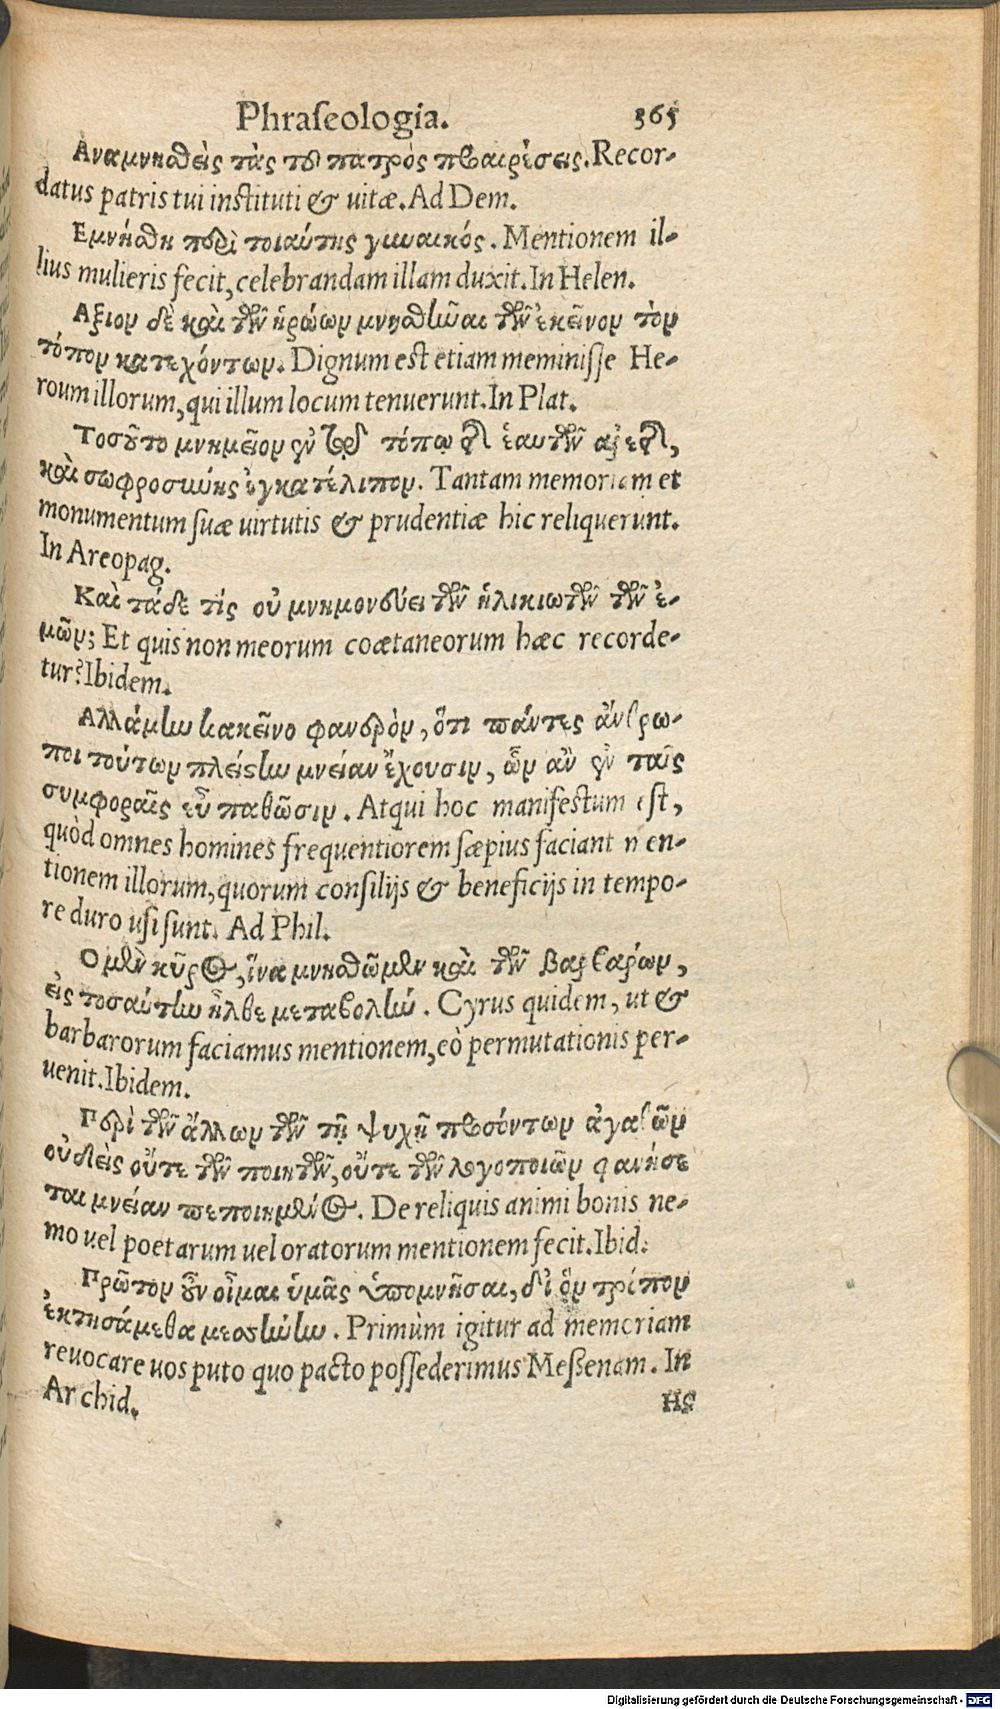 Phraſeologia. 365
Αναμνησθεὶς τὰς τοῦ πατρὸς προαιρέσεις. Recor-
datus patris tui instituti & uitæ. Ad Dem.
Εμνήσθη περὶ τοιαύτης γυναικός. Mentionem il-
lius mulieris fecit, celebrandam illam duxit. In Helen.
Αξιον δὲ καὶ τῶν ἡρώων μνησθῆναι τῶν ἐκεῖνον τὸν
τόπον κατεχόντων. Dignum est etiam meminiſſe He-
roum illorum, qui illum locum tenuerunt. In Plat.
Τοσοῦτο μνημεῖον ἐν τῷ τόπῳ τῆς ἑαυτῶν ἀρετῆς,
καὶ σωφροσύνης ἐγκατέλιπον. Tantam memoriam et
monumentum ſuæ uirtutis & prudentiæ hic reliquerunt.
In Areopag.
Καὶ τάδε τίς οὐ μνημονεύει τῶν ἡλικιωτῶν τῶν ἐ-
μῶν; Et quis non meorum coætaneorum hæc recorde-
tur? Ibidem.
Αλλάμὴν κακεῖνο φανερὸν, ὅτι πάντες ἄνθρω-
ποι τούτων πλείστην μνείαν ἔχουσιν, ὧν ἂν ἐν ταῖς
συμφοραῖς εὖ παθῶσιν. Atqui hoc manifestum est,
quòd omnes homines frequentiorem ſæpius faciant men-
tionem illorum, quorum conſilijs & beneficijs in tempo-
re duro uſi ſunt. Ad Phil.
Ο μὲν κῦρος, ἵνα μνησθῶμεν καὶ τῶν βαρβάρων,
εἰς τοσαύτην ἦλθε μεταβολήν. Cyrus quidem, ut &
barbarorum faciamus mentionem, eò permutationis per-
uenit. Ibidem.
Περὶ τῶν ἄλλων τῶν τῇ ψυχῇ προσόντων ἀγαθῶν
οὐδεὶς οὔτε τῶν ποιητῶν, οὔτε τῶν λογοποιῶν φανήσε
ται μνείαν πεποιημένος. De reliquis animi bonis ne-
mo uel poetarum uel oratorum mentionem fecit. Ibid.
Πρῶτον οὖν οἶμαι ὑμᾶς ὑπομνῆσαι, δι' ὃν τρόπον
ἐκτησάμεθα μεσήνην. Primùm igitur ad memoriam
reuocare uos puto quo pacto poſſederimus Meßenam. In
Archid.
Ης